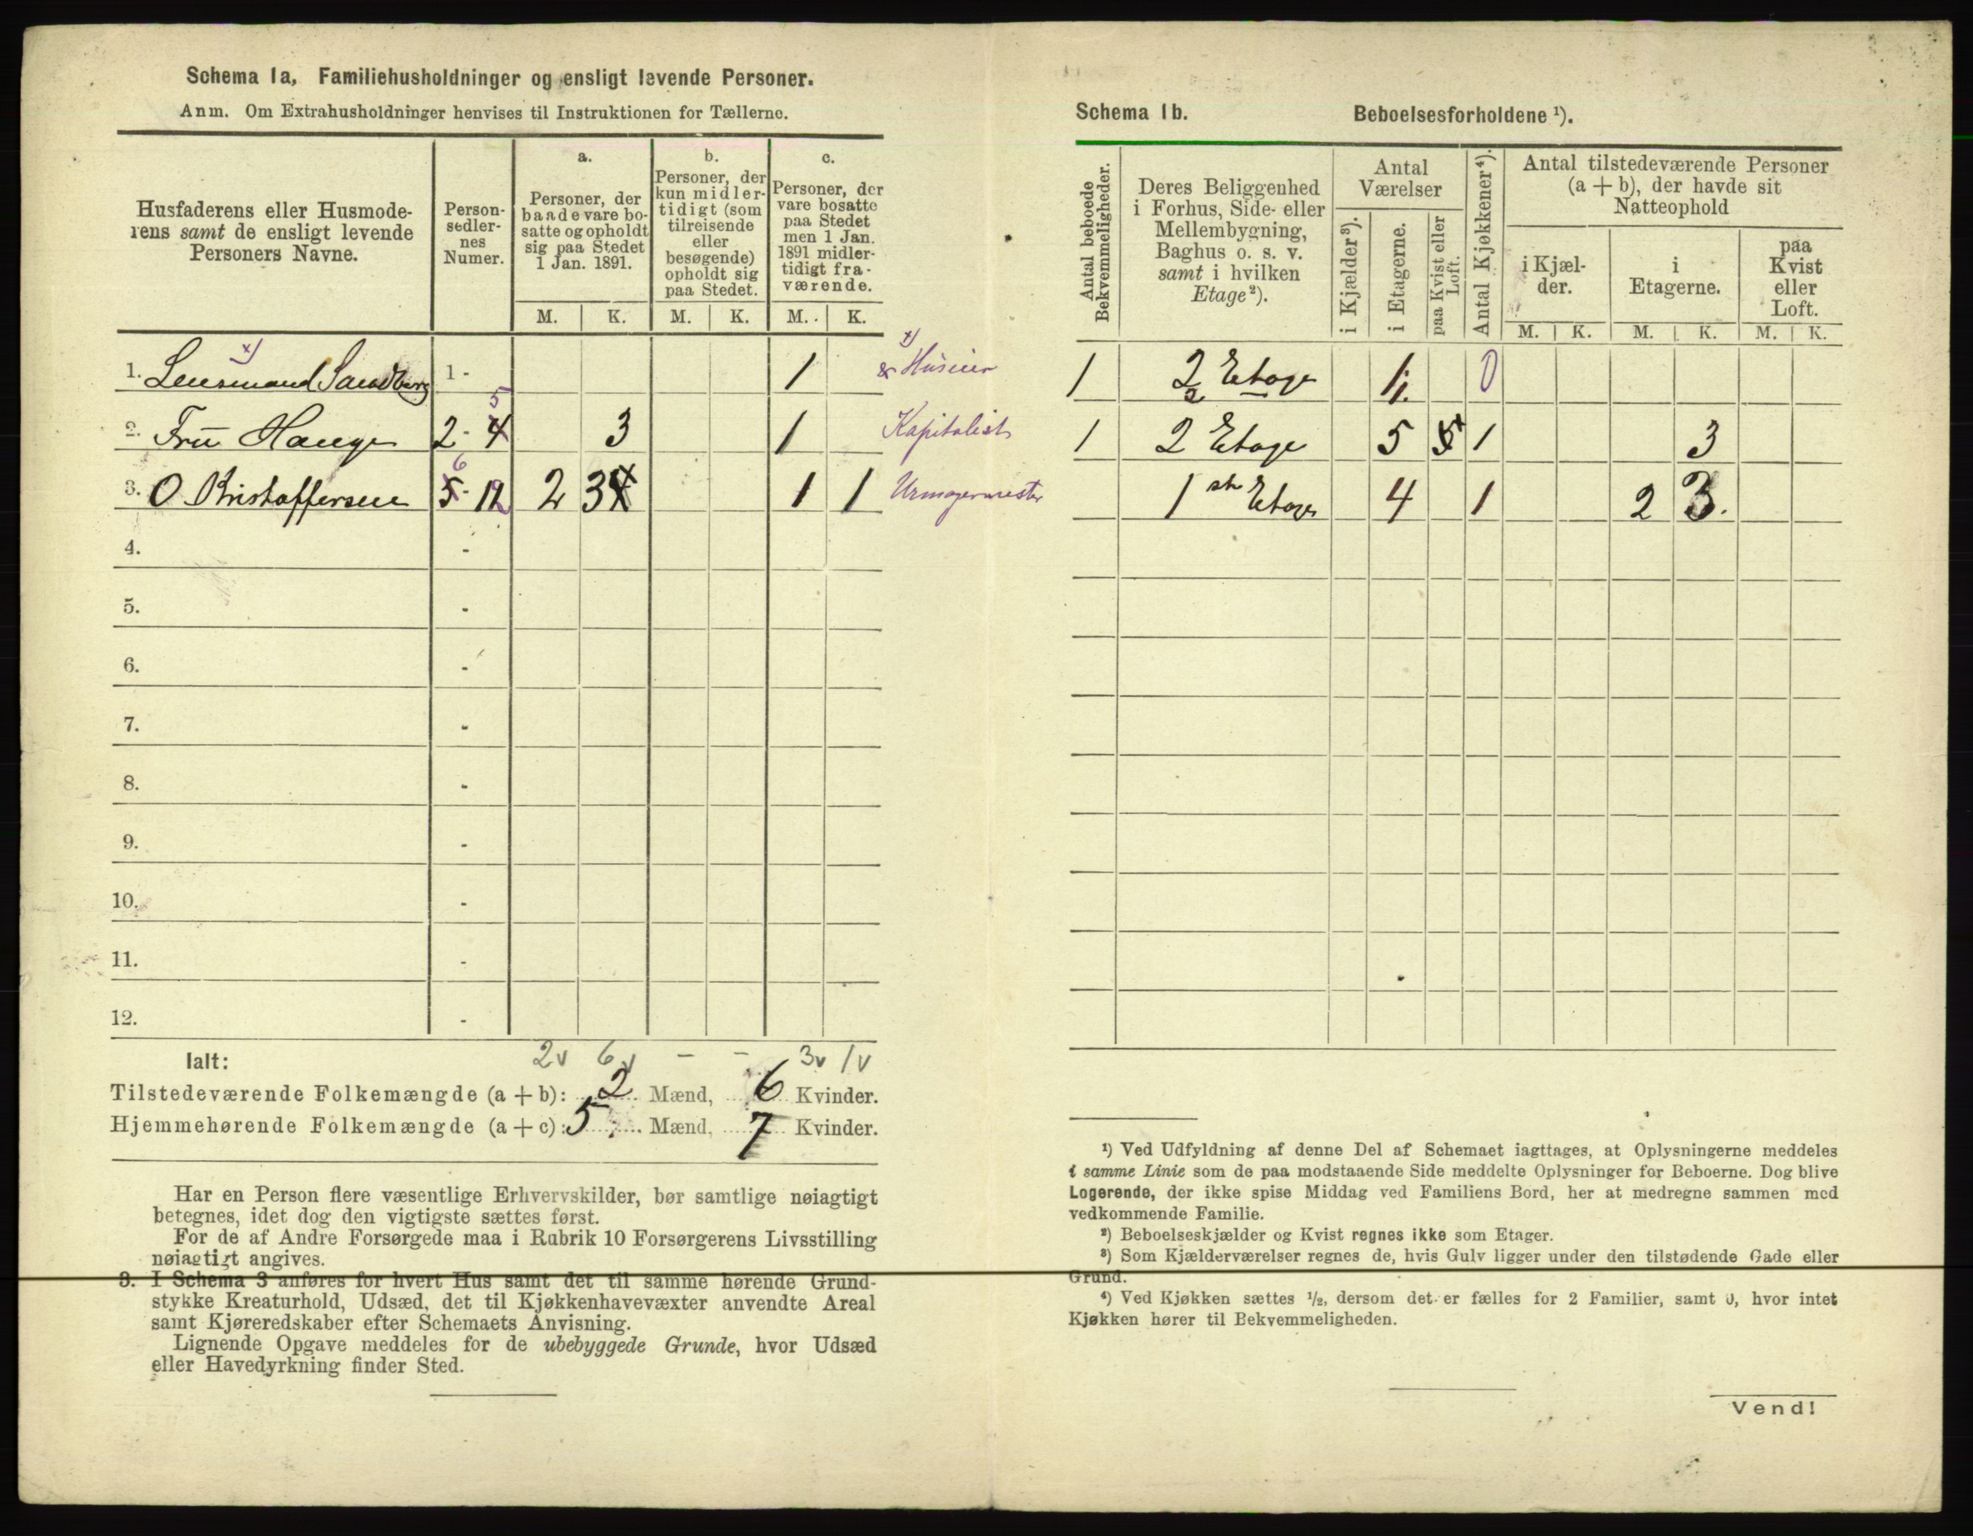 Schema 1a. Familiehusholdninger og ensligt levende Personer.
Anm. Om Extrahusholdninger henvises til Instruktionen for Tællerne.
Husfaderens eller Husmode-
rens samt de ensligt levende
Personers Navne.
Person-
sedler-
nes
Numer.
a.
Personer, der
baade vare bo-
satte og opholdt
sig paa Stedet
1 Jan. 1891.
b.
Personer, der
kun midler-
tidigt (som
tilreisende
eller
besøgende)
opholdt sig
paa Stedet.
c.
Personer, der
vare bosatte
paa Stedet
men 1 Jan.
1891 midler-
tidigt fra-
værende.
M. K. M. K. M. K.
1. Lensmand Sandberg 1 - 1 x) Huseier
2. Fru Hauge 2 - 4 5 3 1 Kapitalist
3. O Kristoffersen 5 6 - 12 2 3 4 1 1 Urmagermester
4. -
5. -
6. -
7. -
8. -
9. -
10. -
11. -
12. -
Ialt: 2v 6v - - 3v 1v
Tilstedeværende Folkemængde (a + b): 2 Mænd, 6 Kvinder.
Hjemmehørende Folkemængde (a + c): 5 Mænd, 7 Kvinder.
Har en Person flere væsentlige Erhvervskilder, bør samtlige nøiagtigt
betegnes, idet dog den vigtigste sættes først.
For de af Andre Forsørgede maa i Rubrik 10 Forsørgerens Livsstilling
nøiagtigt angives.
9. I Schema 3 anføres for hvert Hus samt det til samme hørende Grund-
stykke Kreaturhold, Udsæd, det til Kjøkkenhavevæxter anvendte Areal
samt Kjøreredskaber efter Schemaets Anvisning.
Lignende Opgave meddeles for de ubebyggede Grunde, hvor Udsæd
eller Havedyrkning finder Sted.
Schema 1b. Beboelsesforholdene ¹).
Antal beboede
Bekvemmeligheder.
Deres Beliggenhed
i Forhus, Side- eller
Mellembygning,
Baghus o. s. v.
samt i hvilken
Etage²).
Antal
Værelser
i Kjælder³).
i Etagerne.
paa Kvist eller
Loft.
Antal Kjøkkener⁴).
Antal tilstedeværende Personer
(a + b), der havde sit
Natteophold
i Kjæl-
der.
i
Etagerne.
paa
Kvist
eller
Loft.
M. K. M. K. M. K.
1 2 Etage 1 0
1 2 Etage 5 5 1 3
1ste Etage 4 1 2 3.
¹) Ved Udfyldning af denne Del af Schemaet iagttages, at Oplysningerne meddeles
i samme Linie som de paa modstaaende Side meddelte Oplysninger for Beboerne. Dog blive
Logerende, der ikke spise Middag ved Familiens Bord, her at medregne sammen med
vedkommende Familie.
²) Beboelseskjælder og Kvist regnes ikke som Etager.
³) Som Kjælderværelser regnes de, hvis Gulv ligger under den tilstødende Gade eller
Grund.
⁴) Ved Kjøkken sættes ½, dersom det er fælles for 2 Familier, samt 0, hvor intet
Kjøkken hører til Bekvemmeligheden.
Vend!